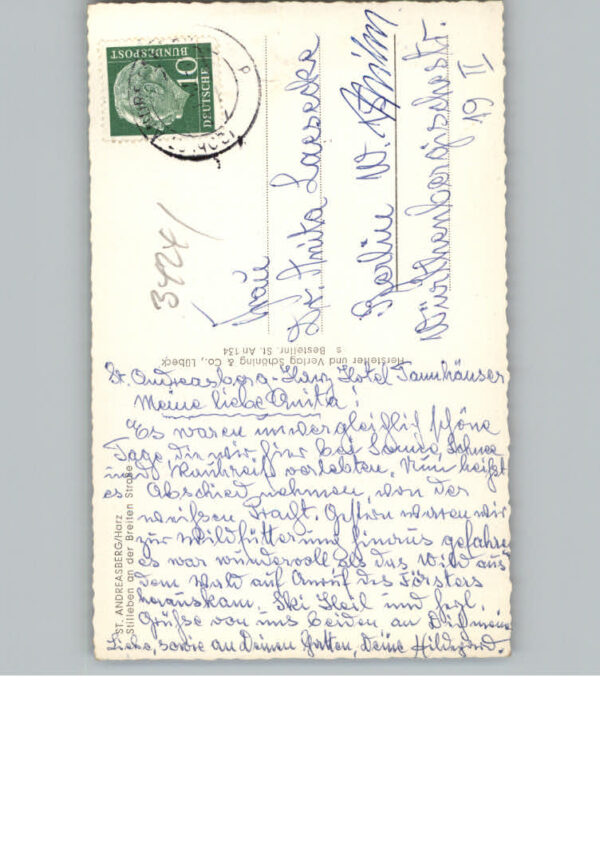 DEUTSCHE
BUNDESPOST
10
3424/
Frau
Dr. Anita Laesecke
Berlin W.
Württembergischestr.
19 II
Hersteller und Verlag Schöning & Co., Lübeck
s Bestellnr. St. An 134
ST. ANDREASBERG/Harz
Stilleben an der Breiten Straße
St. Andreasberg-Harz Hotel Tannhäuser
Meine liebe Anita!
Es waren unvergleichlich schöne
Tage die wir hier bei Sonne, Schnee
und Rauhreif verlebten. Nun heißt
es Abschied nehmen, von der
weissen Pracht. Gestern waren wir
zur Wildfütterung hinaus gefahren
es war wundervoll als das Wild aus
dem Wald auf Anruf des Försters
herauskam. Ski Heil und hrzl.
Grüße von uns beiden an Dich meine
Liebe, sowie an Deinen Gatten, Deine Hildegard.